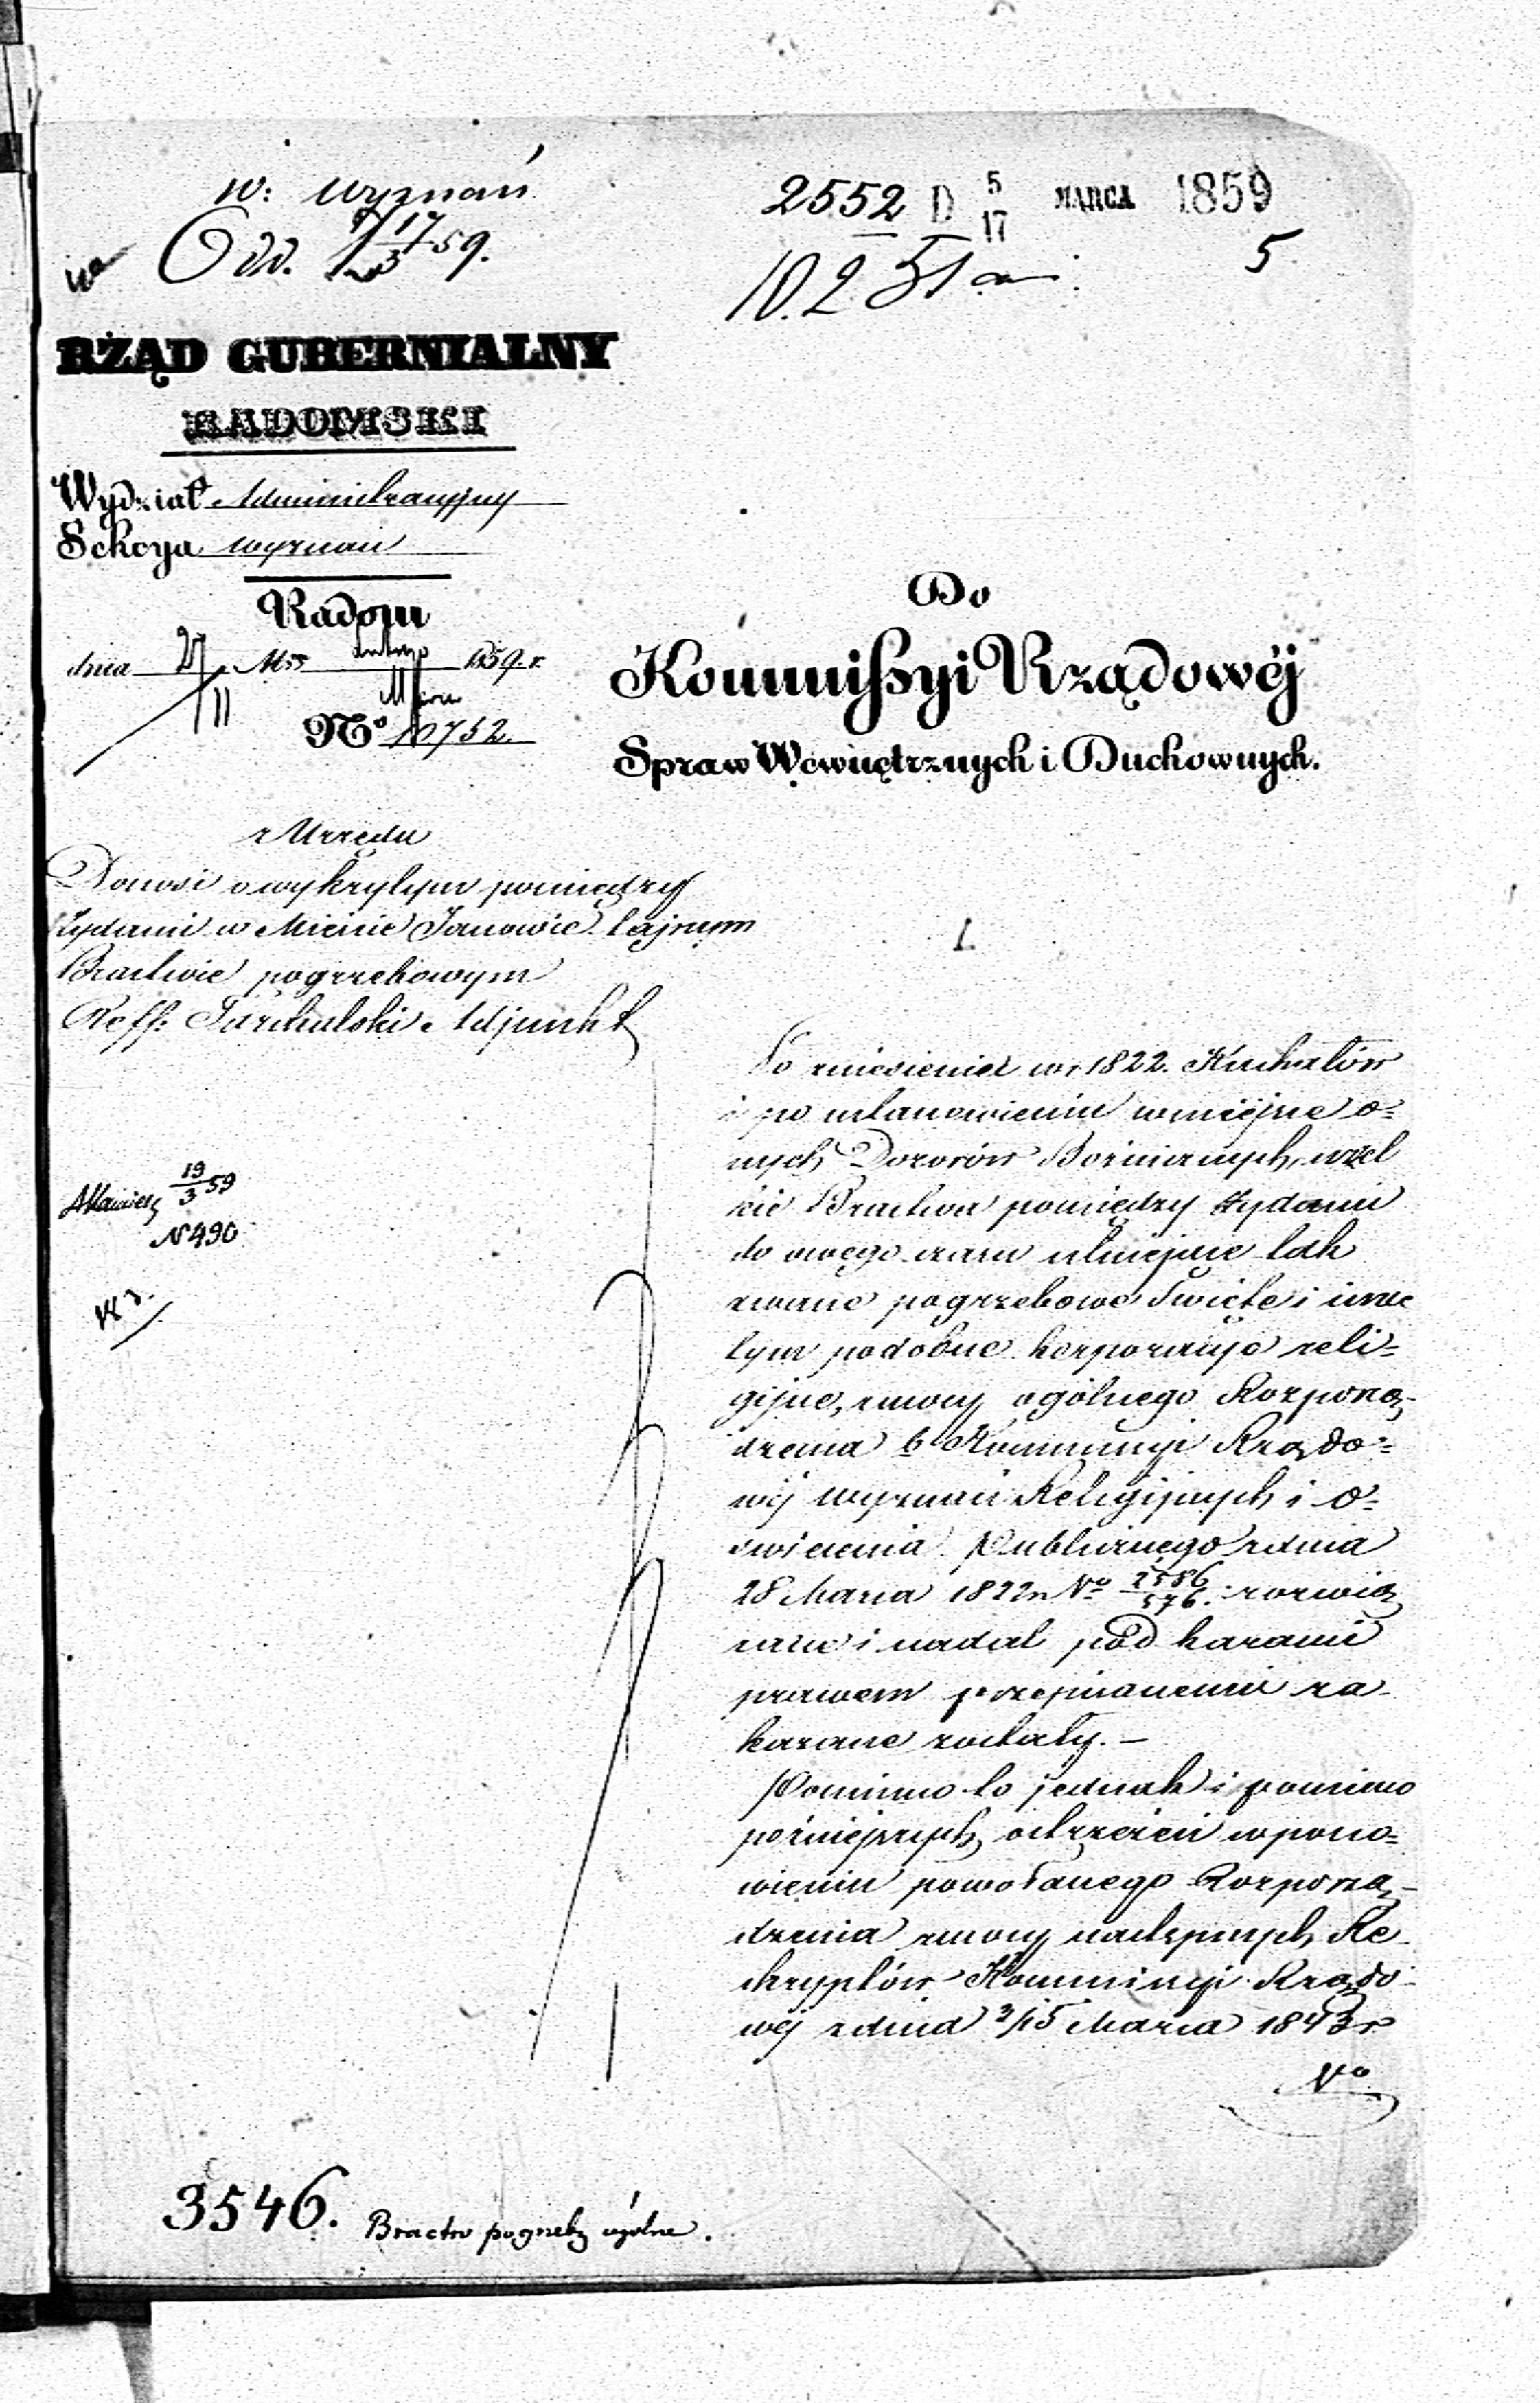 w: Wyznań
Odd. 17/3 59.
2552 D 5/17 MARCA 1859
5
RZĄD GUBERNIALNY
RADOMSKI
Wydział Administracyjny
Sekcya Wyznań
Radom
dnia 27 Mca Lutego 1859 r.
11 Marca
No 10752.
Do
Kommissyi Rządowéj
Spraw Wewnętrznych i Duchownych.
z Urzędu
Donosi o wykrytym pomiędzy
Żydami w Mieście Janowie tajnym
Bractwie pogrzebowym
Reff: Adjunkt
19/3 59
N 490
Po zniesieniu w r 1822. Kahałów
i po ustanowieniu w miejsce o=
nych Dozorów Bożniczych, wszel
kie Bractwa pomiędzy Żydami
do owego czasu istniejące tak
zwane pogrzebowe Święte i inne
tym podobne korporacye reli=
gijne, z mocy ogólnego Rozporzą-
dzenia b. Kommissyi Rządo=
wéj Wyznań Religijnych i O=
świecenia Publicznego z dnia
28 Marca 1822 r No 2586/576. rozwią
zane i nadal pod karami
prawem przepisanemi za-
kazane zostały. —
Pomimo to jednak i pomimo
poźniejszych ostrzeżeń w pono=
wieniu powołanego Rozporzą-
dzenia z mocy następnych Re
skryptów Kommissyi Rządo-
wéj z dnia 3/15 Marca 1843 r
No
3546. Bractw pogrzeb. ogólne.